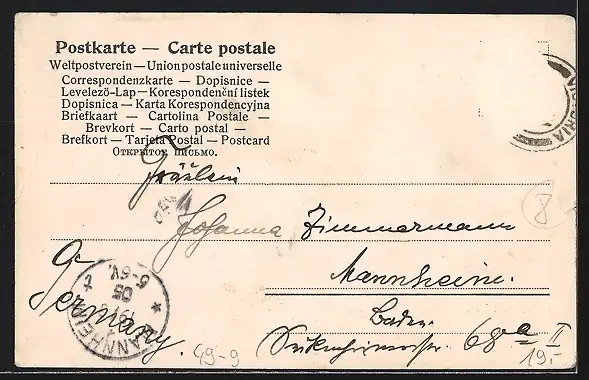 Postkarte — Carte postale
Weltpostverein — Union postale universelle
Correspondenzkarte — Dopisnice —
Levelező-Lap — Korespondenční listek
Dopisnica — Karta Korespondencyjna
Briefkaart — Cartolina Postale —
Brevkort — Carto postal —
Brefkort — Tarjeta Postal — Postcard
Открытое письмо.
Fräulein
Johanna Zimmermann
Mannheim.
Baden.
68a II
Germany.
MANNHEIM
6-6V.
05
8
49-9
19.-